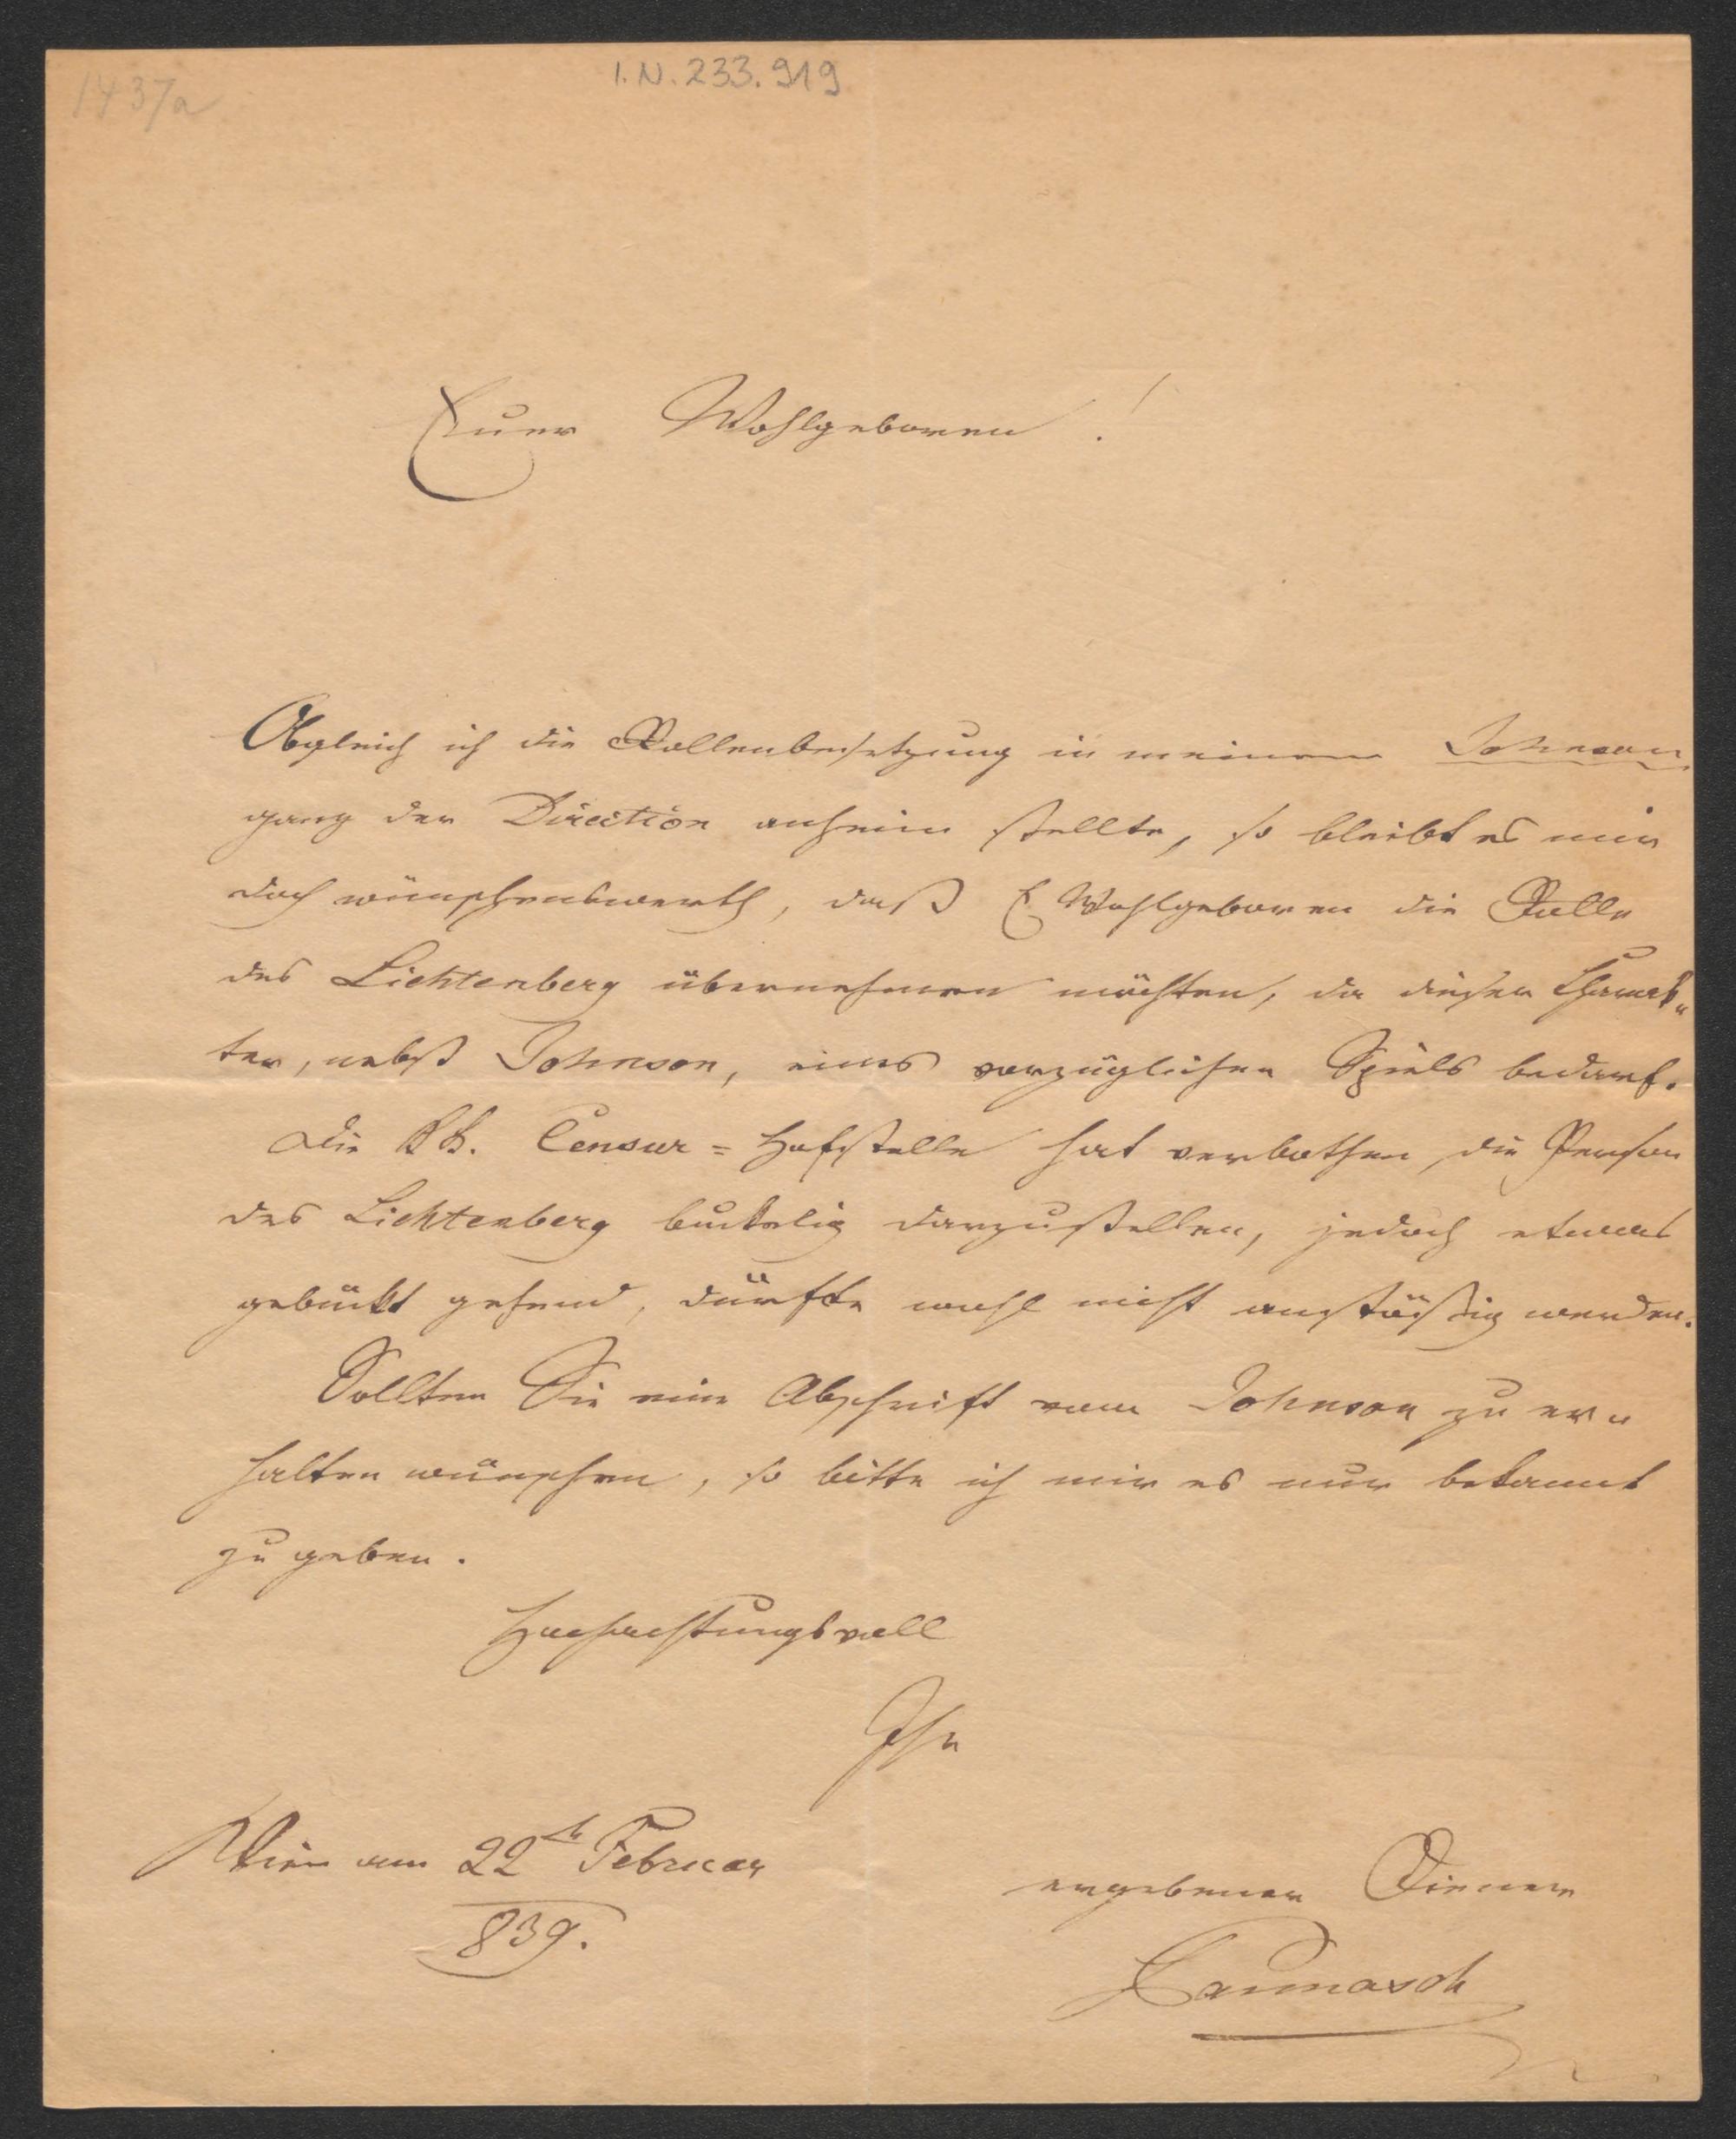 1437a
I.N. 233.919
Euer Wohlgeboren!
Obgleich ich die Rollenbesetzung in meinem Johnson
ganz der Direction anheim stellte, so bleibt es mir
doch wünschenswerth, daß E Wohlgeboren die Rolle
des Lichtenberg übernehmen möchten, da dieser Charak„
ter, nebst Johnson, eines vorzüglichen Spiels bedarf.
Die KK. Censur=Hofstelle hat verbothen, die Person
des Lichtenberg buckelig darzustellen, jedoch etwas
gebückt gehend, dürfte wohl nicht anstößig werden.
Sollten Sie eine Abschrift vom Johnson zu er„
halten wünschen, so bitte ich mir es nur bekannt
zu geben.
Hochachtungsvoll
Ihr
Wien am 22 Februar
839.
ergebener Diener